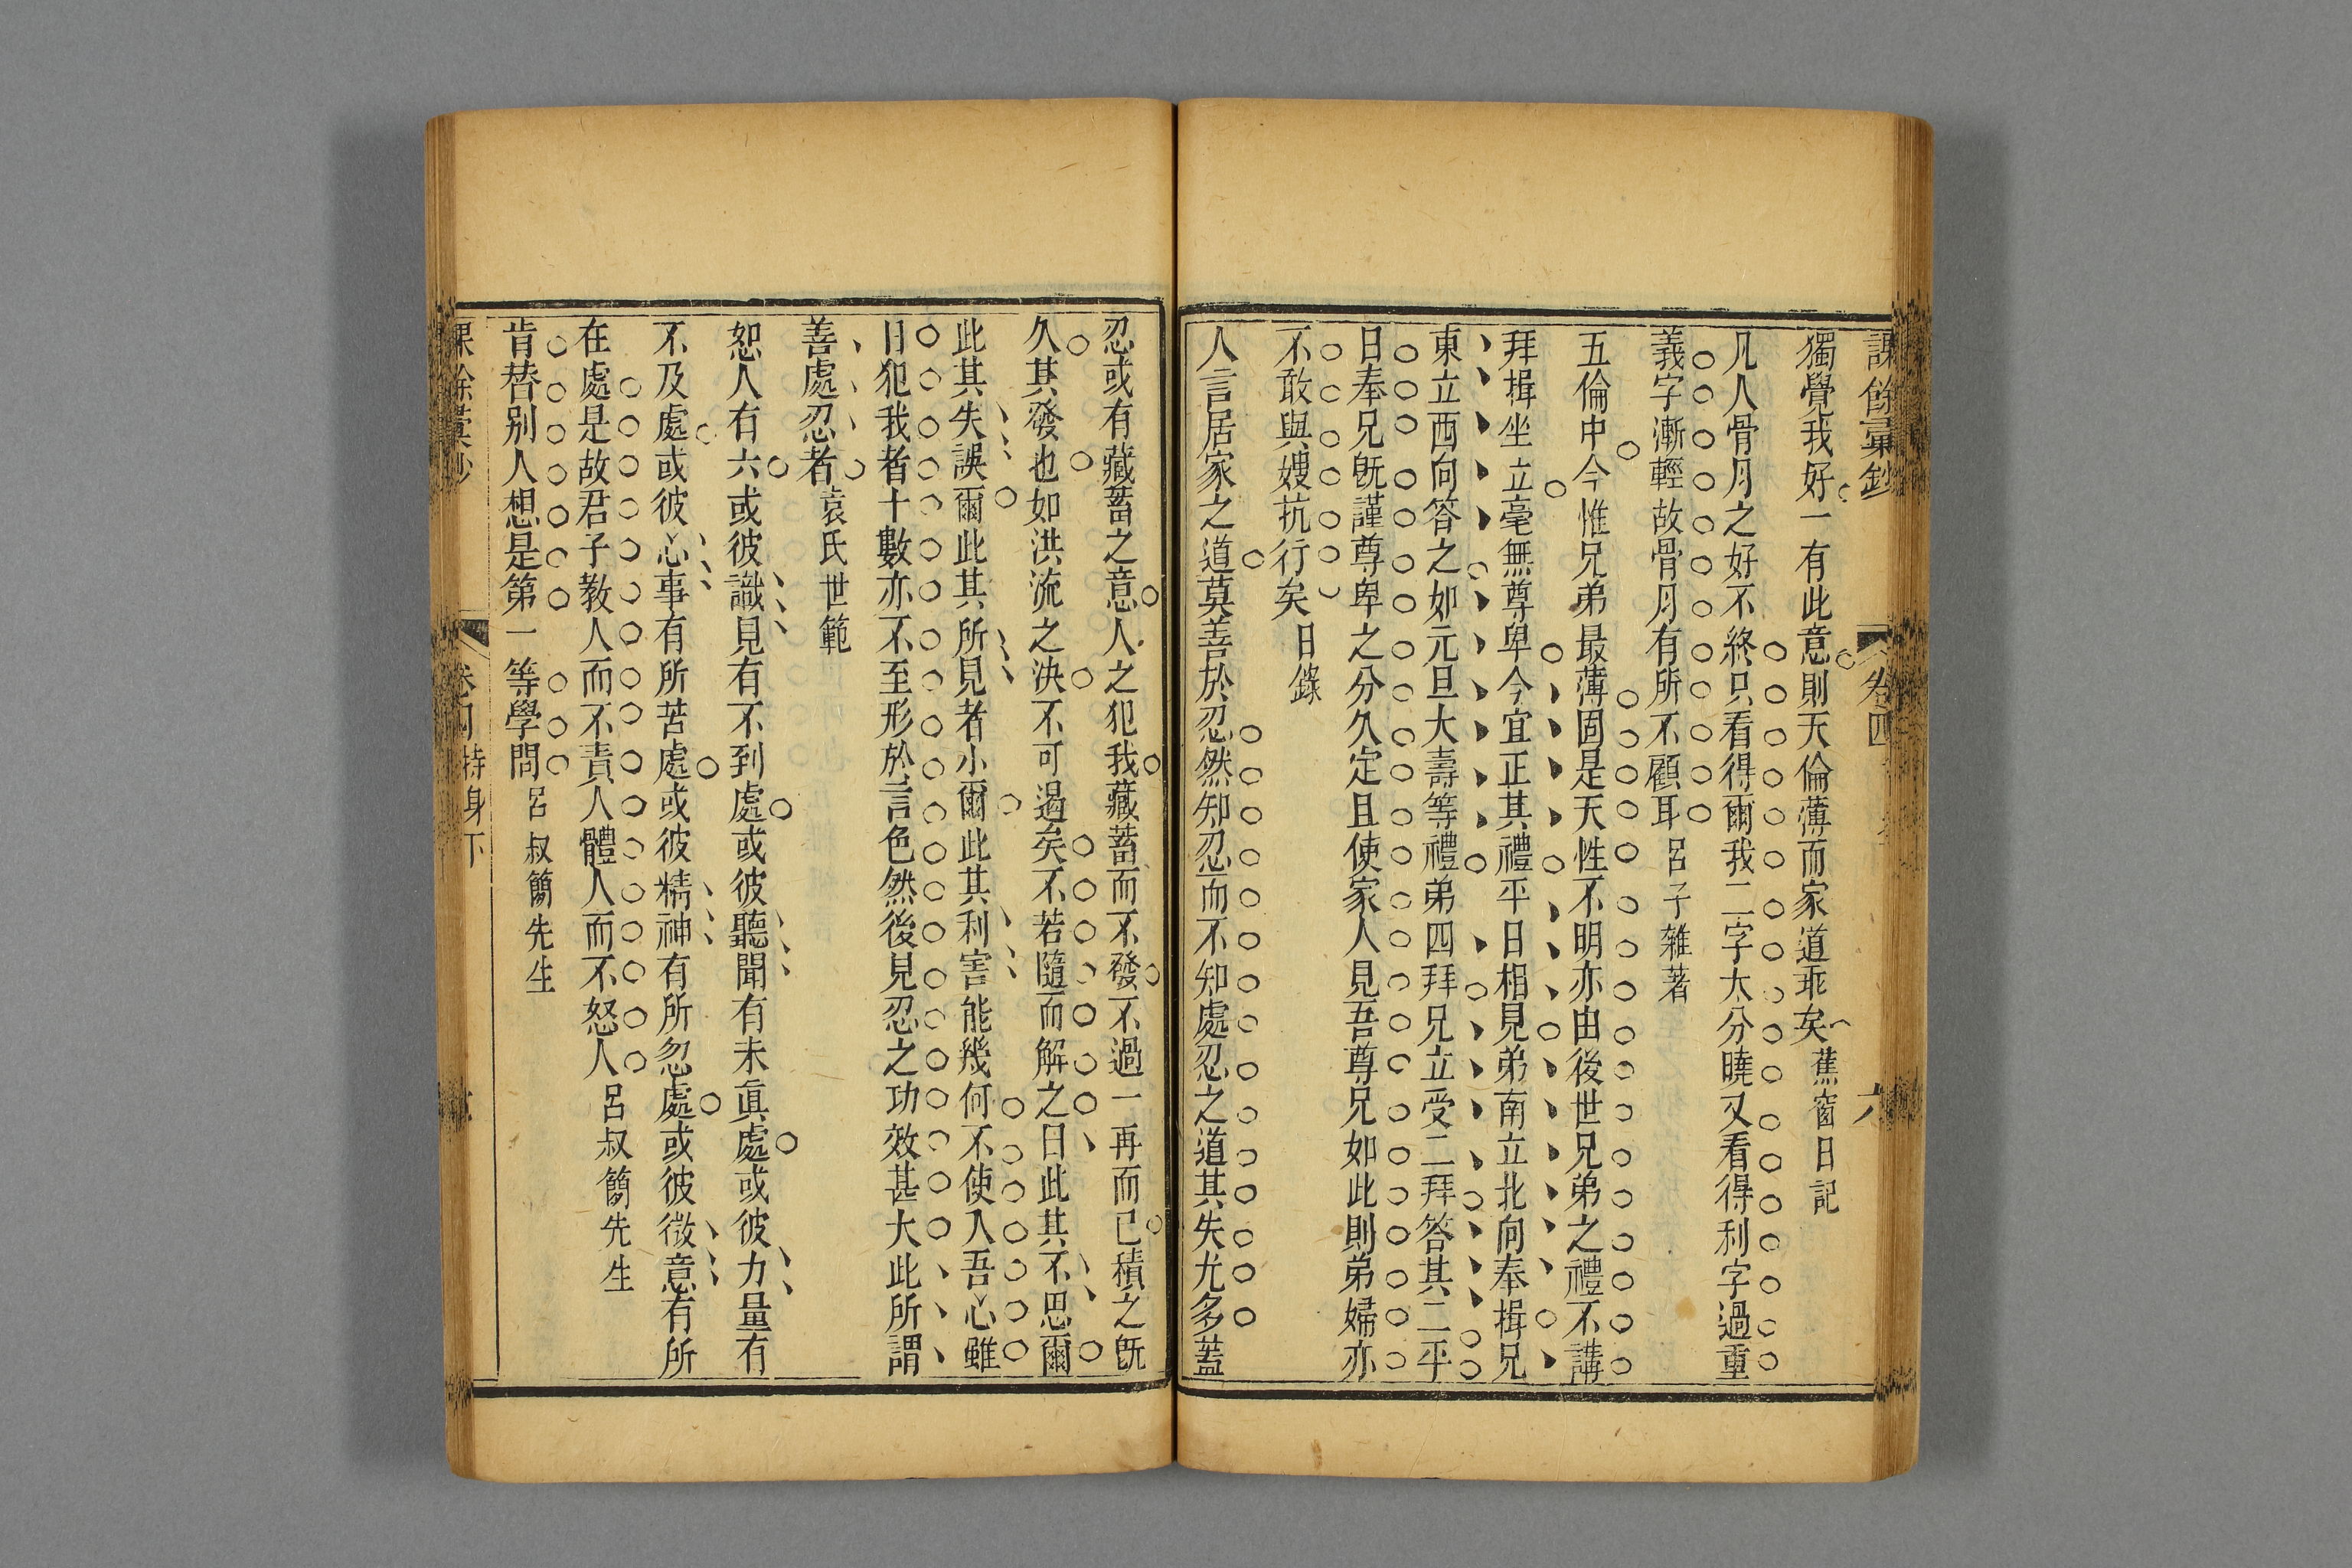 課餘彙鈔 卷四 六
獨覺我好一有此意則天倫薄而家道乖矣蕉窗日記
凡人骨月之好不終只看得爾我二字太分曉又看得利字過重
義字漸輕故骨月有所不顧耳呂子雜著
五倫中今惟兄弟最薄固是天性不明亦由後世兄弟之禮不講
拜揖坐立毫無尊卑今宜正其禮平日相見弟南立北向奉揖兄
東立西向答之如元旦大壽等禮弟四拜兄立受二拜答其二平
日奉兄既謹尊卑之分久定且使家人見吾尊兄如此則弟婦亦
不敢與嫂抗行矣日錄
人言居家之道莫善於忍然知忍而不知處忍之道其失尤多蓋
忍或有藏蓄之意人之犯我藏蓄而不發不過一再而已積之既
久其發也如洪流之決不可遏矣不若隨而解之曰此其不思爾
此其失誤爾此其所見者小爾此其利害能幾何不使入吾心雖
日犯我者十數亦不至形於言色然後見忍之功效甚大此所謂
善處忍者袁氏世範
恕人有六或彼識見有不到處或彼聽聞有未眞處或彼力量有
不及處或彼心事有所苦處或彼精神有所忽處或彼微意有所
在處是故君子教人而不責人體人而不怒人呂叔簡先生
肯替别人想是第一等學問呂叔簡先生
課餘彙鈔 卷四持身下